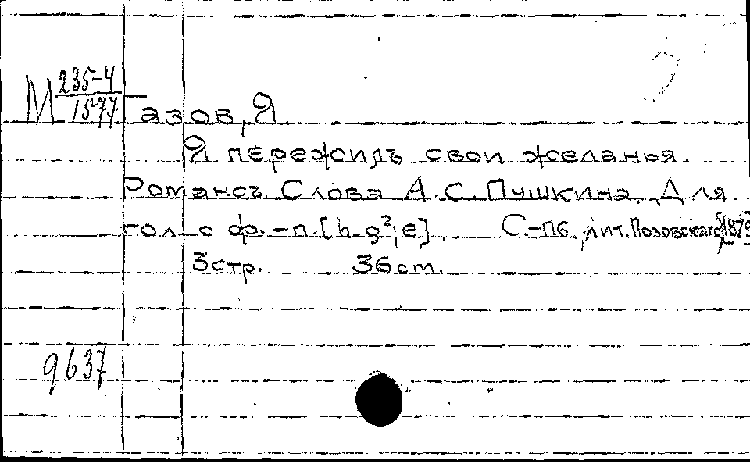 М 235-4/1577
Газов, Я
Я пережилъ свои желанья.
Романсъ Слова А. С. Пушкина. Для
гол с ф.-п. [h-g², e]. С-пб, лит. Позовская, 1879
3стр. 36см.
9637